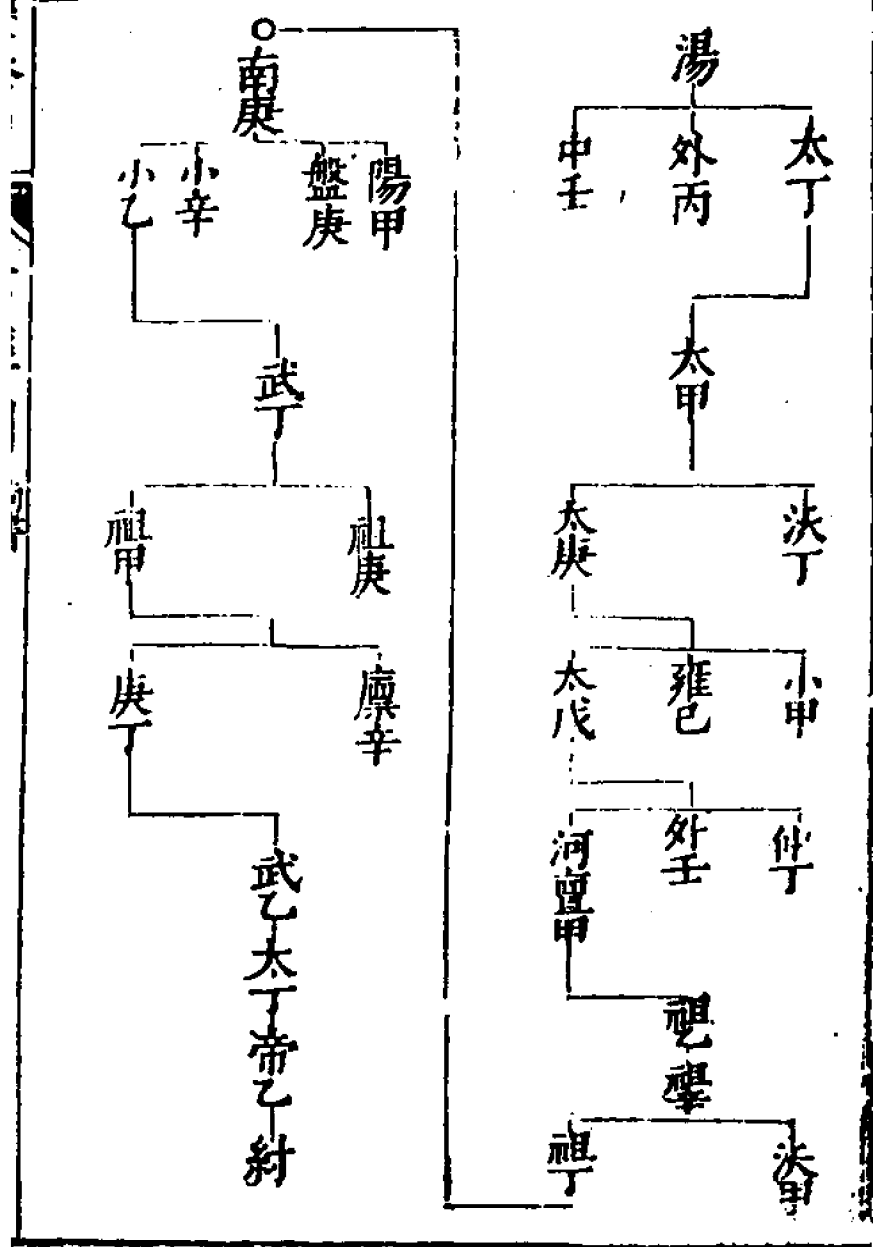 湯
太丁
外丙
中壬
太甲
沃丁
太庚
小甲
雍己
太戊
仲丁
外壬
河亶甲
祖乙
祖辛
沃甲
祖丁
南庚
陽甲
盤庚
小辛
小乙
武丁
祖庚
祖甲
廪辛
庚丁
武乙
太丁
帝乙
紂